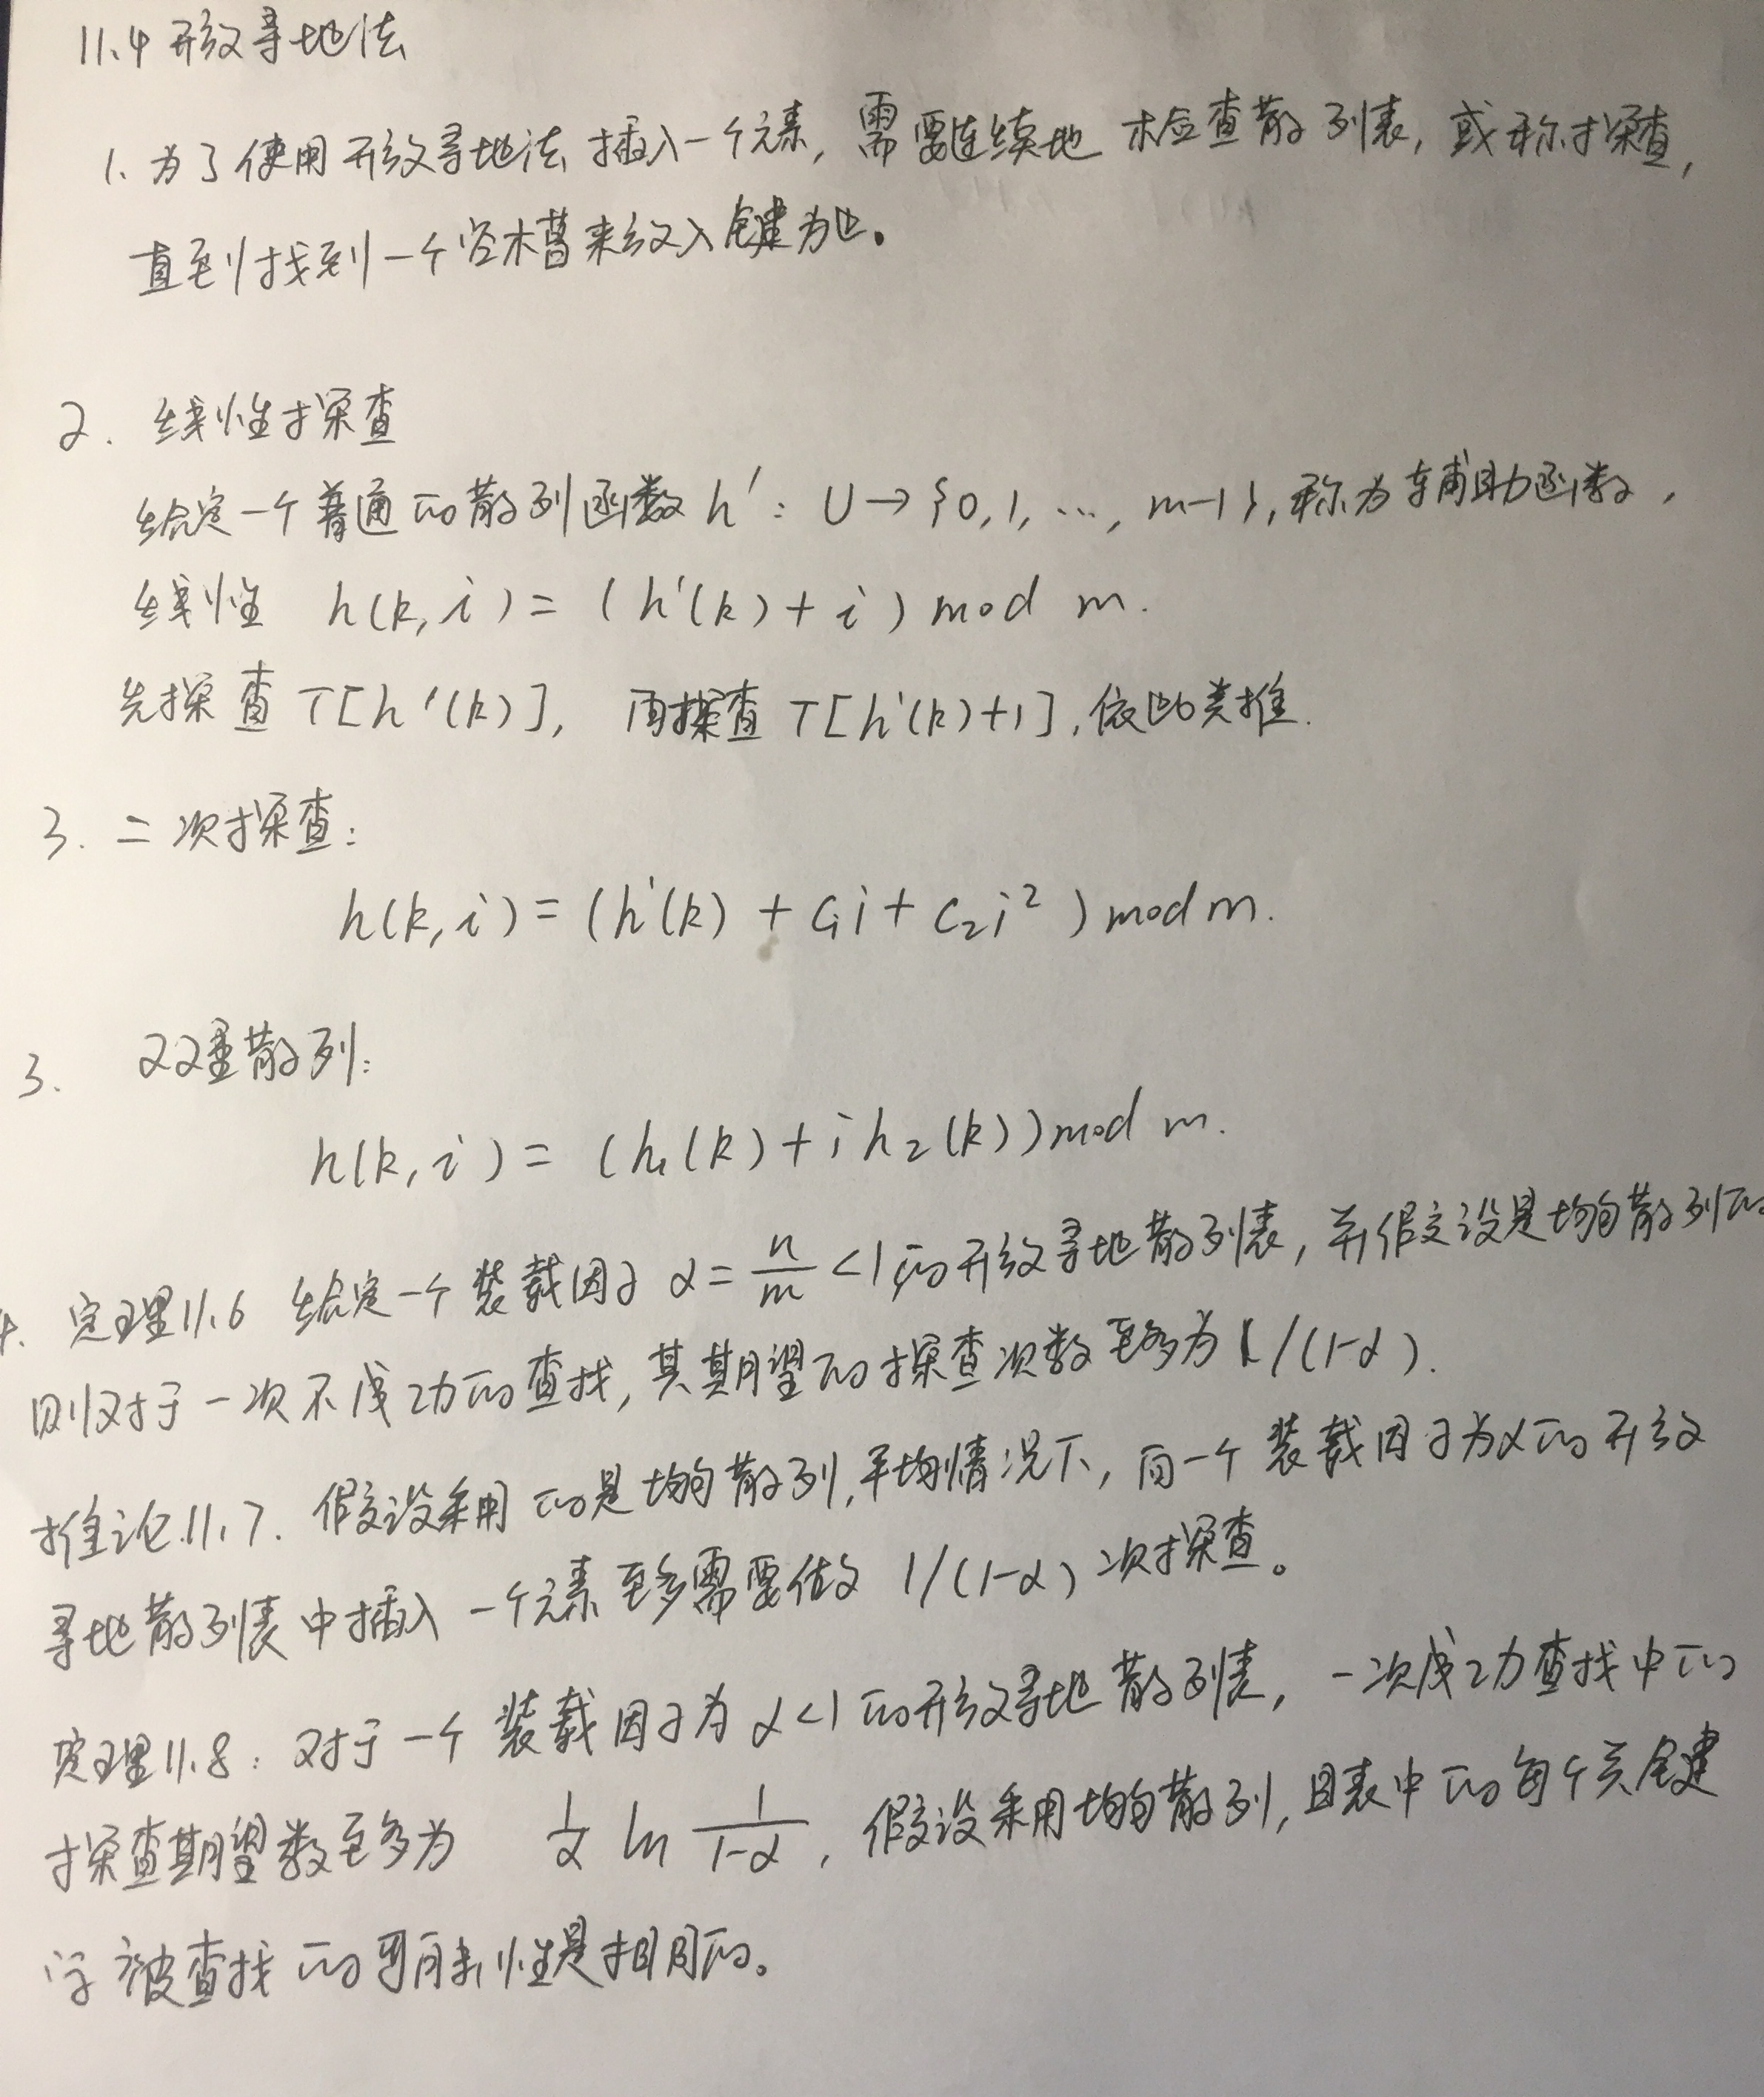 11.4 开放寻址法
1. 为了使用开放寻址法插入一个元素, 需要连续地检查散列表, 或称探查,
直到找到一个空槽来放入键为止。
2. 线性探查
给定一个普通的散列函数 h': U→{0,1,…, m-1}, 称为辅助函数,
线性 h(k,i)=(h'(k)+i) mod m.
先探查 T[h'(k)], 再探查 T[h'(k)+1], 依此类推.
3. 二次探查:
h(k,i)=(h'(k)+c₁i+c₂i²) mod m.
3. 双重散列:
h(k,i)=(h₁(k)+ih₂(k)) mod m.
4. 定理11.6 给定一个装载因子 α=n/m<1的开放寻址散列表, 并假设是均匀散列的
则对于一次不成功的查找, 其期望的探查次数至多为1/(1-α).
推论11.7. 假设采用的是均匀散列, 平均情况下, 向一个装载因子为α的开放
寻址散列表中插入一个元素至多需要做 1/(1-α) 次探查。
定理11.8: 对于一个装载因子为α<1的开放寻址散列表, 一次成功查找中的
探查期望数至多为 1/α ln 1/(1-α), 假设采用均匀散列, 且表中的每个关键
字被查找的可能性是相同的。